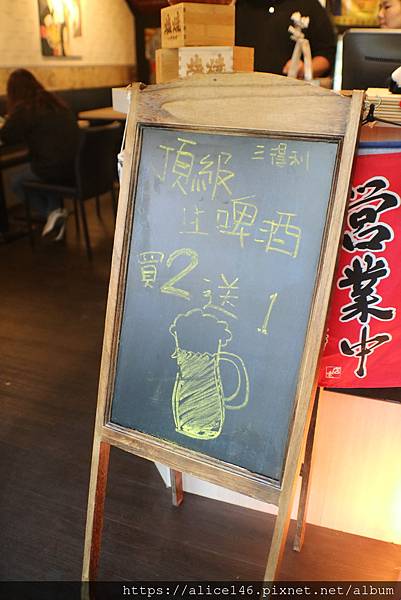 三得利
頂級
生啤酒
買2送1
営業中
https://alice146.pixnet.net/album